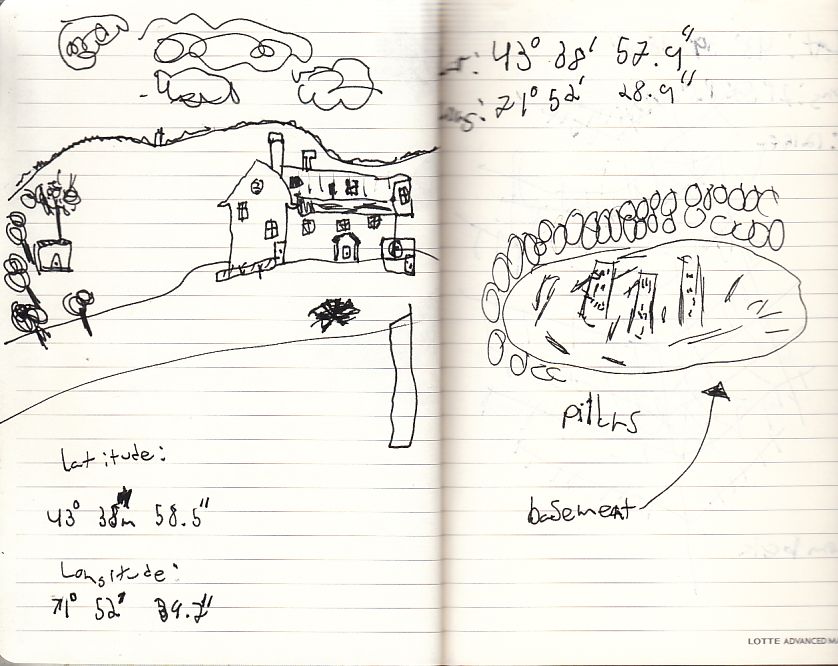 Latitude:
43° 38m 58.5"
Longitude:
71° 52' 39.2"
43° 38' 57.9"
71° 52' 28.9"
pillars
basement
LOTTE ADVANCED